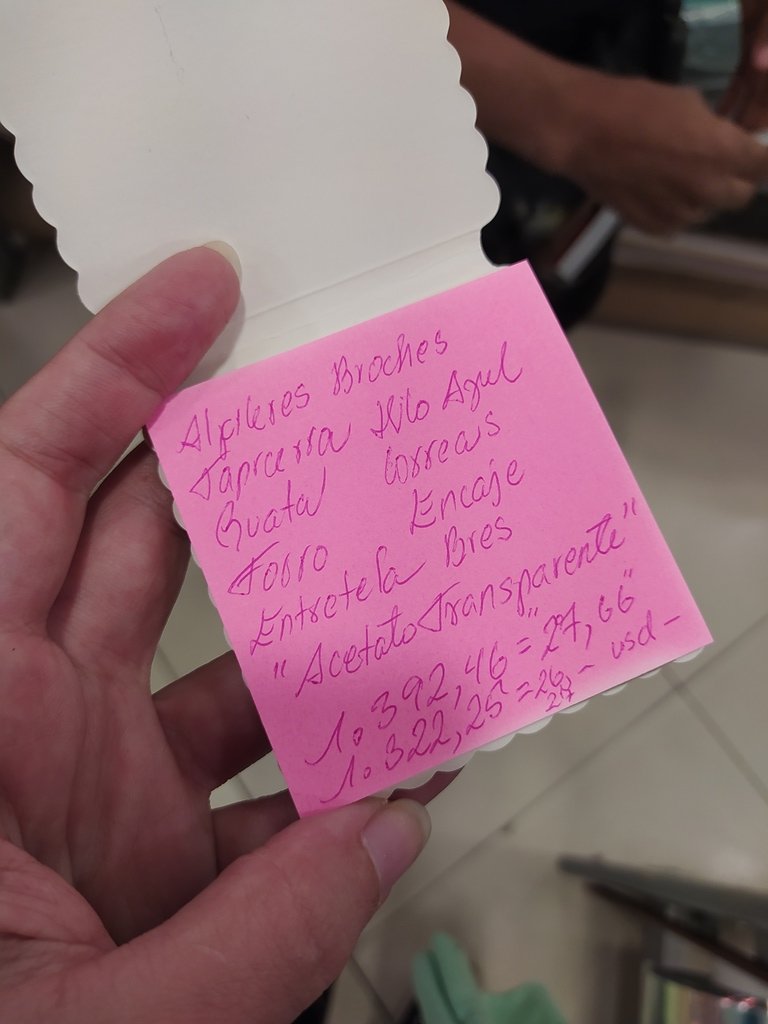 Alfileres Broches
Tapicería Hilo Azul
Guata Correas
Forro Encaje
Entretela Bies
"Acetato Transparente"
1.392,46 = "27,66"
1.322,25 = 26,- usd -
27